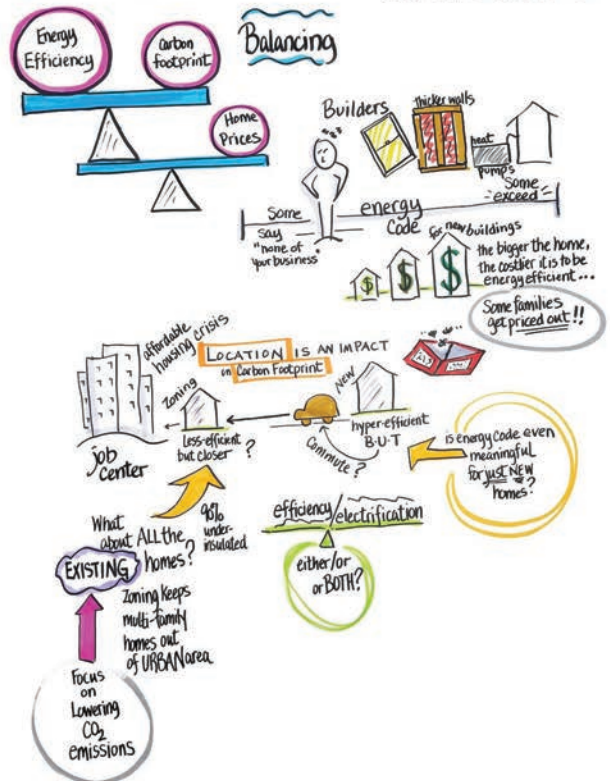 Energy
Efficiency
Carbon
footprint
Balancing
Home
Prices
Builders
thicker walls
heat
pumps
Some
exceed
Some
say
"none of
your business"
energy
Code
for new buildings
$ $ $
the bigger the home,
the costlier it is to be
energy efficient...
Some families
get priced out!!
affordable
housing crisis
LOCATION IS AN IMPACT
on Carbon Footprint
Zoning
job
center
less-efficient
but closer?
Commute?
NEW
hyper-efficient
B-U-T
is energy code even
meaningful
for just NEW
homes?
What
about ALL the
EXISTING homes?
90%
under-
insulated
efficiency/electrification
either/or
or BOTH?
Zoning keeps
multi-family
homes out
of URBAN area
Focus
on
Lowering
CO2
emissions